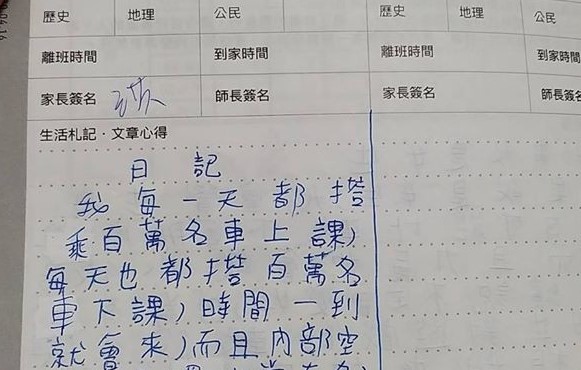 歷史 地理 公民 歷史 地理 公民
離班時間 到家時間 離班時間 到家時間
家長簽名 師長簽名 家長簽名 師長簽名
生活札記·文章心得
日記
我每一天都搭
乘百萬名車上課,
每天也都搭百萬名
車下課,時間一到
就會來,而且內部空